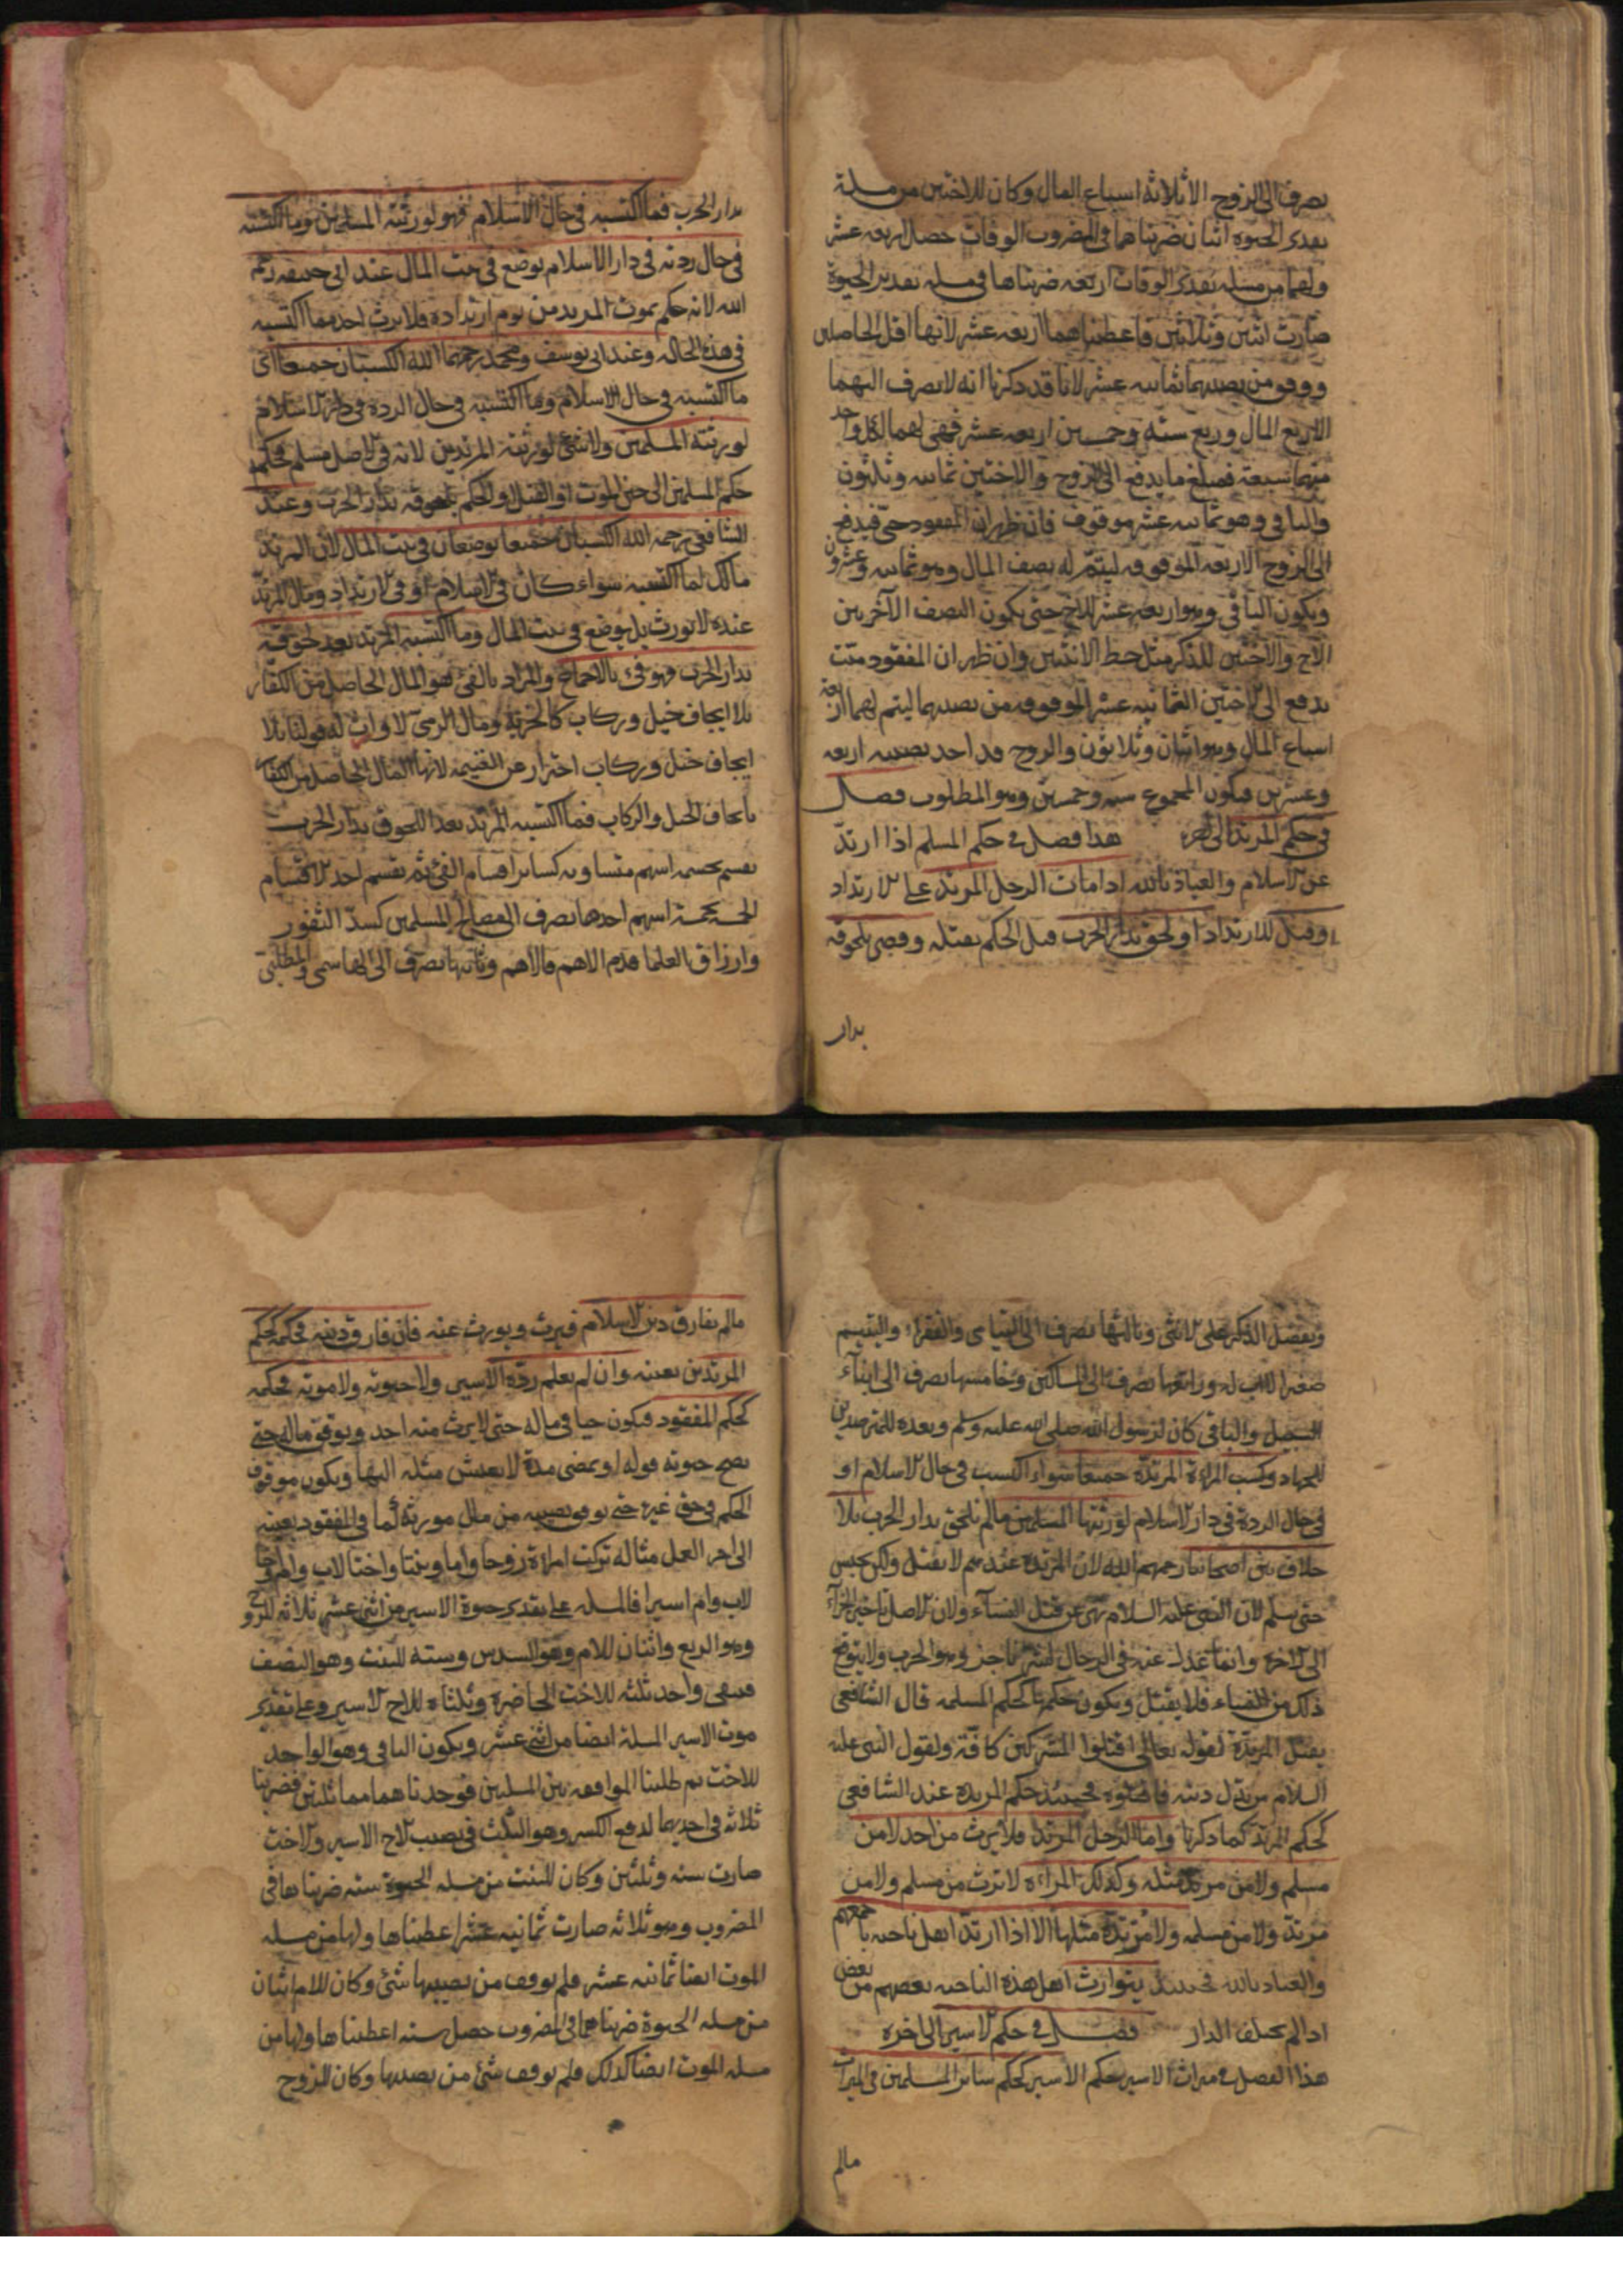 يصرف الى الزوج الا ثلاثة اسباع المال وكان للاختين من مسلة
تقدير الحيوة اثنان ضربناهما في المضروب الوفات حصل اربعة عشر
ولهما من مسلة تقدير الوفات اربعة ضربناها في مسلة تقدير الحيوة
صارت اثنين وثلاثين فاعطيناهما اربعة عشر لانها اقل الحاصلين
ووقف من نصيبهما ثمانية عشر لانا قد ذكرنا انه لا يصرف اليهما
الا ربع المال وربع ستة وخمسين اربعة عشر فهي لهما لكل واحد
منهما سبعة فمبلغ ما يدفع الى الزوج والاختين ثمانية وثلثون
والباقي وهو ثمانية عشر موقوف فان ظهر ان المفقود حي فيدفع
الى الزوج الاربعة الموقوفة ليتم له نصف المال وهو ثمانية وعشرون
ويكون الباقي وهو اربعة عشر للاخ حتى يكون النصف الآخر بين
الاخ والاختين للذكر مثل حظ الانثيين وان ظهر ان المفقود ميت
يدفع الى الاختين الثمانية عشر الموقوفة من نصيبهما ليتم لهما اربعة
اسباع المال وهو اثنان وثلاثون والزوج قد احذ نصيبه اربعة
وعشرين فيكون المجموع ستة وخمسين وهو المطلوب فصل
في حكم المرتد الى اخره هذا فصل في حكم المسلم اذا ارتد
عن الاسلام والعياذ بالله اذا مات الرجل المرتد على الارتداد
او قتل للارتداد او لحق بدار الحرب قبل الحكم بقتله وقضي بلحوقه
بدار
بدار الحرب فما اكتسبه في حال الاسلام فهو لورثته المسلمين وما اكتسبه
في حال ردته في دار الاسلام يوضع في بيت المال عند ابي حنيفة رحمه
الله لانه حكم بموت المرتد من يوم ارتداده فلا يرث احد مما اكتسبه
في هذه الحالة وعند ابي يوسف ومحمد رحمهما الله الكسبان جميعا اي
ما اكتسبه في حال الاسلام وما اكتسبه في حال الردة في دار الاسلام
لورثته المسلمين ولا شئ لورثته المرتدين لانه في الاصل مسلم فحكمه
حكم المسلمين الى حين الموت او القتل والحكم بلحوقه بدار الحرب وعند
الشافعي رحمه الله الكسبان جميعا يوضعان في بيت المال لان المرتد
مالك لما اكتسبه سواء كان في الاسلام او في الارتداد ومال المرتد
عنده لا يورث بل يوضع في بيت المال وما اكتسبه المرتد بعد لحوقه
بدار الحرب فهو فئ بالاجماع والمراد بالفئ هو المال الحاصل من الكفار
بلا ايجاف خيل وركاب كالجزية ومال الذمي لا وارث له قولنا بلا
ايجاف خيل وركاب احتراز عن الغنيمة لانها المال الحاصل من الكفار
بايجاف الخيل والركاب فما اكتسبه المرتد بعد اللحوق بدار الحرب
يقسم بخمسة اسهم متساوية كسائر اقسام الفئ ثم يقسم احد الاقسام
الخمسة بخمسة اسهم احدها يصرف الى مصالح المسلمين كسد الثغور
وارزاق العلما قدم الاهم فالاهم وثانيها يصرف الى الهاشمي والمطلبي
ويفضل الذكر على الانثى وثالثها يصرف الى اليتامى والفقراء واليتيم
صغير لا اب له ورابعها يصرف الى المساكين وخامسها يصرف الى ابناء
السبيل والباقي كان لرسول الله صلى الله عليه وسلم وبعده للمترصدين
للجهاد وكسب المراة المرتدة جميعا سواء اكتسب في حال الاسلام او
في حال الردة في دار الاسلام لورثتها المسلمين ما لم تلحق بدار الحرب بلا
خلاف بين اصحابنا رحمهم الله لان المرتدة عندهم لا تقتل ولكن تحبس
حتى تسلم لان النبي عليه السلام نهى عن قتل النساء ولان الاصل تاخير الجزاء
الى الآخرة وانما عدل عنه في الرجال لشر ناجز وهو الحرب ولا يتوقع
ذلك من النساء فلا يقتل ويكون حكمها كحكم المسلمة قال الشافعي
يقتل المرتدة لقوله تعالى اقتلوا المشركين كافة ولقول النبي عليه
السلام من بدل دينه فاقتلوه فحينئذ حكم المرتدة عند الشافعي
كحكم المرتد كما ذكرنا واما الرجل المرتد فلا يرث من احد لا من
مسلم ولا من مرتد مثله وكذلك المراءة لا ترث من مسلم ولا من
مرتد ولا من مسلمة ولا مرتدة مثلها الا اذا ارتد اهل ناحية باجمعهم
والعياذ بالله فحينئذ يتوارث اهل هذه الناحية بعضهم من بعض
اذا لم يختلف الدار فصل في حكم الاسير الى اخره
هذا الفصل في ميراث الاسير حكم الاسير كحكم سائر المسلمين في الميراث
مالم
مالم يفارق دين الاسلام فيرث ويورث عنه فان فارق دينه فحكمه حكم
المرتدين بعينه وان لم يعلم ردة الاسير ولا حيوته ولا موته فحكمه
كحكم المفقود فيكون حيا في ماله حتى لا يرث منه احد ويوقف ماله حتى
يصح حيوته قوله او يمضي مدة لا يعيش مثله اليها ويكون موقوف
الحكم في حق غيره حتى يوقف نصيبه من مال مورثه كما في المفقود بعينه
الى اخر العمل مثاله تركت امراة زوجا واما وبنتا واختا لاب وام واخا
لاب وام اسيرا فالمسلة على تقدير حيوة الاسير من اثني عشر ثلاثة للزوج
وهو الربع واثنان للام وهو السدس وستة للبنت وهو النصف
فيبقى واحد ثلثه للاخت الحاضرة وثلثاه للاخ الاسير وعلى تقدير
موت الاسير المسلة ايضا من اثني عشر ويكون الباقي وهو الواحد
للاخت ثم طلبنا الموافقة بين المسلتين فوجدناهما مماثلتين فضربنا
ثلاثة في احديهما لدفع الكسر وهو الثلث في نصيب الاخ الاسير والاخت
صارت ستة وثلثين وكان للبنت من مسلة الحيوة ستة ضربناها في
المضروب وهو ثلاثة صارت ثمانية عشر اعطيناها ولها من مسلة
الموت ايضا ثمانية عشر فلم يوقف من نصيبها شئ وكان للام اثنان
من مسلة الحيوة ضربناهما في المضروب حصل ستة اعطيناها ولها من
مسلة الموت ايضا كذلك فلم يوقف شئ من نصيبها وكان للزوج